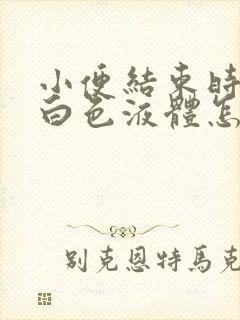 小便結束時
白色液體怎
別克恩特馬克